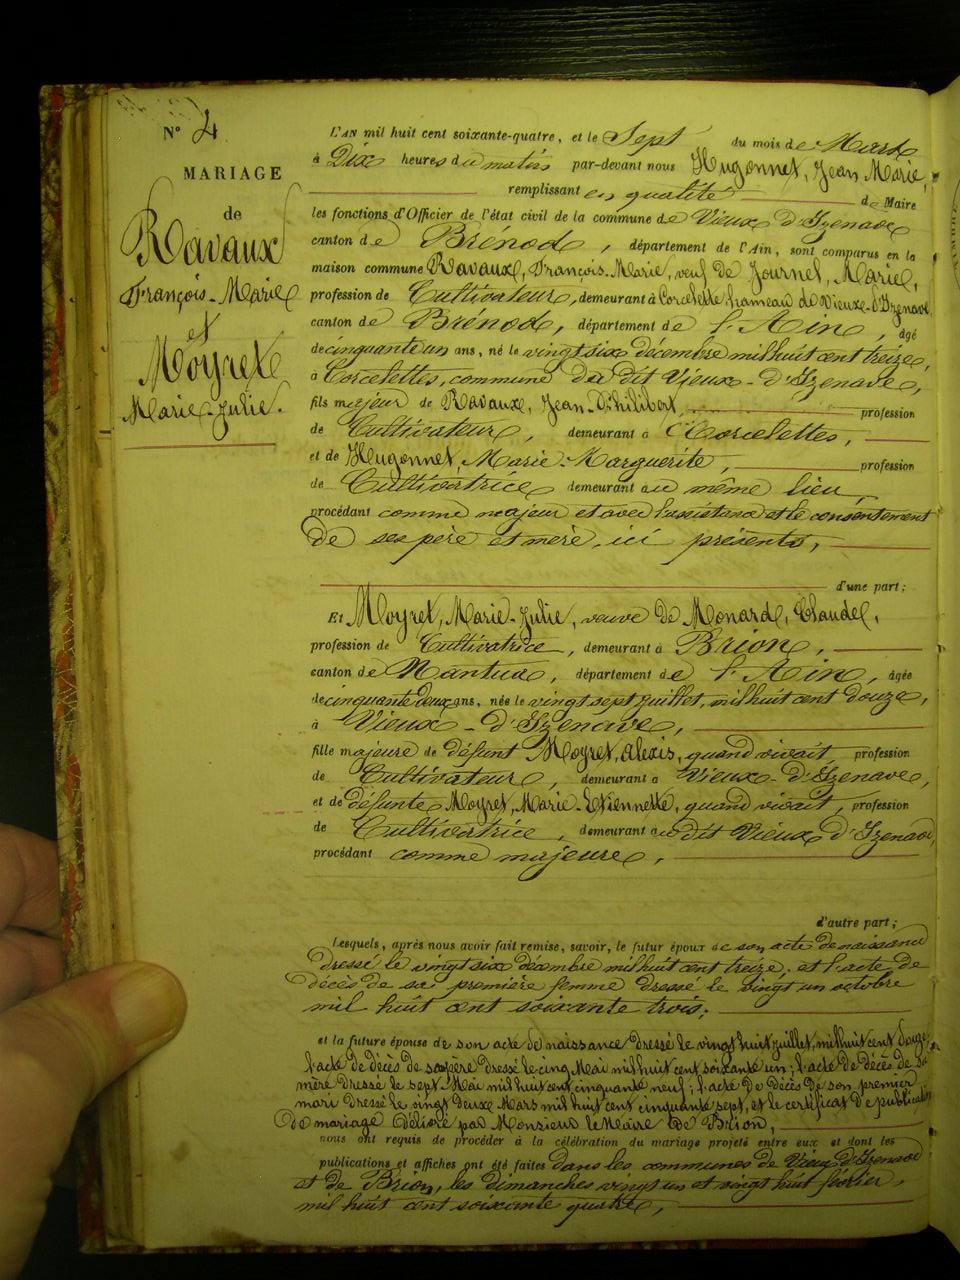 N° 4
MARIAGE
de
Ravaux
François-Marie
et
Moyret
Marie-Julie.
L'AN mil huit cent soixante-quatre, et le Sept du mois de Mars
à Dix heures du matin par-devant nous Hugonnet, Jean Marie,
remplissant en qualité de Maire
les fonctions d'Officier de l'état civil de la commune de Vieux d'Izenave
canton de Brénod, département de l'Ain, sont comparus en la
maison commune Ravaux, François-Marie, veuf de Journet, Marie,
profession de Cultivateur, demeurant à Corcelette hameau de Vieux-d'Izenave,
canton de Brénod, département de l'Ain, âgé
de cinquante un ans, né le vingt six décembre mil huit cent treize,
à Corcelettes, commune du dit Vieux-d'Izenave,
fils majeur de Ravaux, Jean-Philibert, profession
de Cultivateur, demeurant à Corcelettes,
et de Hugonnet, Marie-Marguerite, profession
de Cultivatrice demeurant au même lieu,
procédant comme majeur et avec l'assistance et le consentement
de ses père et mère, ici présents,
d'une part;
Et Moyret, Marie-Julie, veuve de Monard, Claude,
profession de Cultivatrice, demeurant à Brion,
canton de Nantua, département de l'Ain, âgée
de cinquante deux ans, née le vingt sept juillet, mil huit cent douze,
à Vieux-d'Izenave,
fille majeure de défunt Moyret, Alexis, quand vivait profession
de Cultivateur, demeurant à Vieux-d'Izenave,
et de défunte Moyret, Marie-Etiennette, quand vivait, profession
de Cultivatrice, demeurant au dit Vieux d'Izenave,
procédant comme majeure,
d'autre part;
Lesquels, après nous avoir fait remise, savoir, le futur époux de son acte de naissance
dressé le vingt six décembre mil huit cent treize, et l'acte de
décès de sa première femme dressé le vingt un octobre
mil huit cent soixante trois;
et la future épouse de son acte de naissance dressé le vingt huit juillet, mil huit cent douze,
l'acte de décès de son père dressé le cinq Mai mil huit cent soixante un; l'acte de décès de sa
mère dressé le sept Mai mil huit cent cinquante neuf; l'acte de décès de son premier
mari dressé le vingt deux Mars mil huit cent cinquante sept, et le certificat de publication
de mariage délivré par Monsieur le Maire de Brion,
nous ont requis de procéder à la célébration du mariage projeté entre eux et dont les
publications et affiches ont été faites dans les communes de Vieux d'Izenave
et de Brion, les dimanches vingt un et vingt huit février,
mil huit cent soixante quatre,